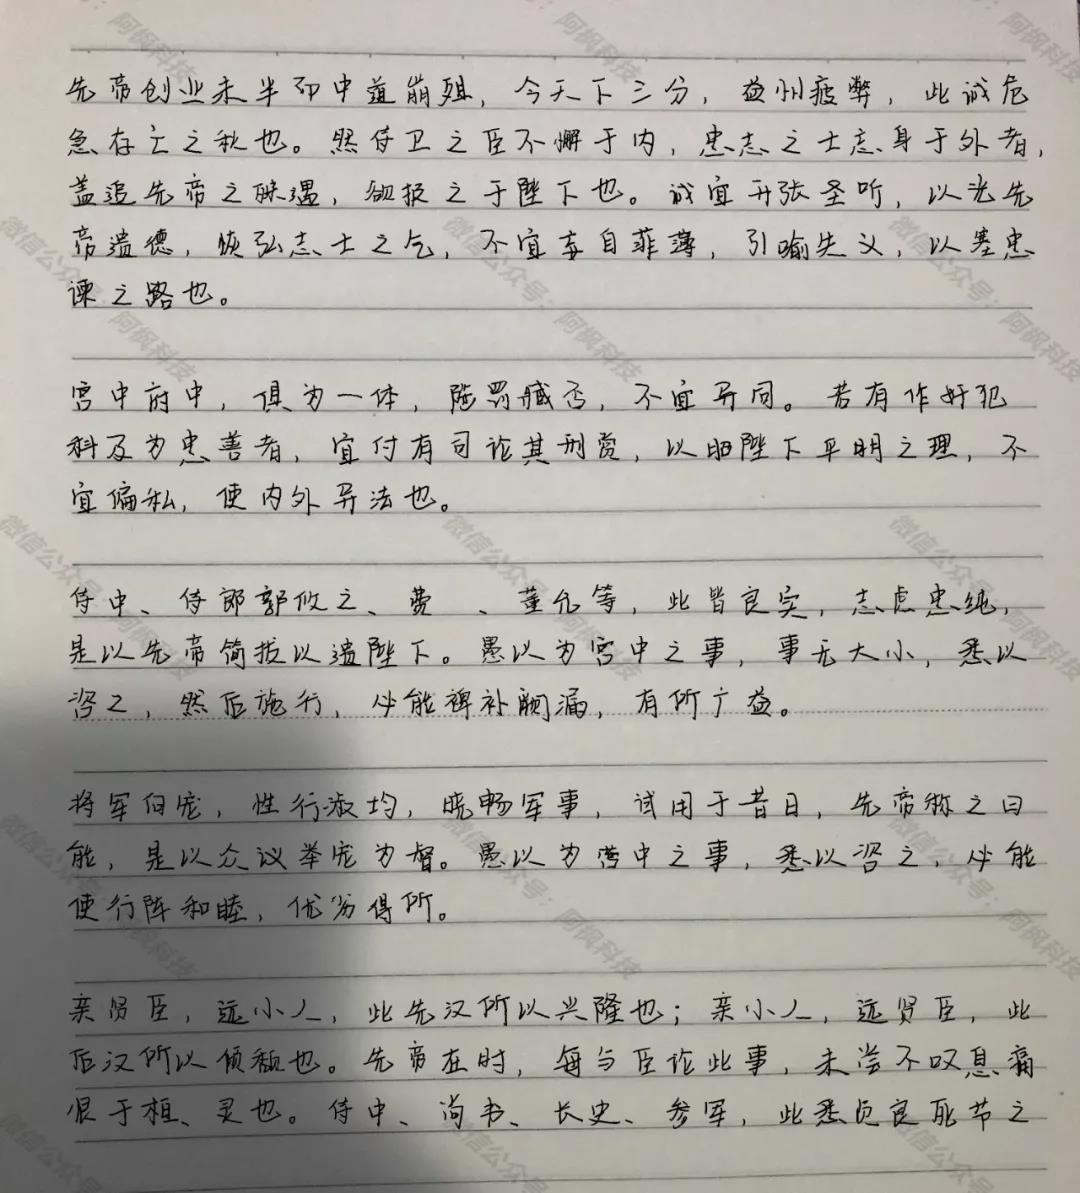 先帝创业未半而中道崩殂，今天下三分，益州疲弊，此诚危
急存亡之秋也。然侍卫之臣不懈于内，忠志之士忘身于外者，
盖追先帝之殊遇，欲报之于陛下也。诚宜开张圣听，以光先
帝遗德，恢弘志士之气，不宜妄自菲薄，引喻失义，以塞忠
谏之路也。
宫中府中，俱为一体，陟罚臧否，不宜异同。若有作奸犯
科及为忠善者，宜付有司论其刑赏，以昭陛下平明之理，不
宜偏私，使内外异法也。
侍中、侍郎郭攸之、费 、董允等，此皆良实，志虑忠纯，
是以先帝简拔以遗陛下。愚以为宫中之事，事无大小，悉以
咨之，然后施行，必能裨补阙漏，有所广益。
将军向宠，性行淑均，晓畅军事，试用于昔日，先帝称之曰
能，是以众议举宠为督。愚以为营中之事，悉以咨之，必能
使行阵和睦，优劣得所。
亲贤臣，远小人，此先汉所以兴隆也；亲小人，远贤臣，此
后汉所以倾颓也。先帝在时，每与臣论此事，未尝不叹息痛
恨于桓、灵也。侍中、尚书、长史、参军，此悉贞良死节之
微信公众号：阿枫科技